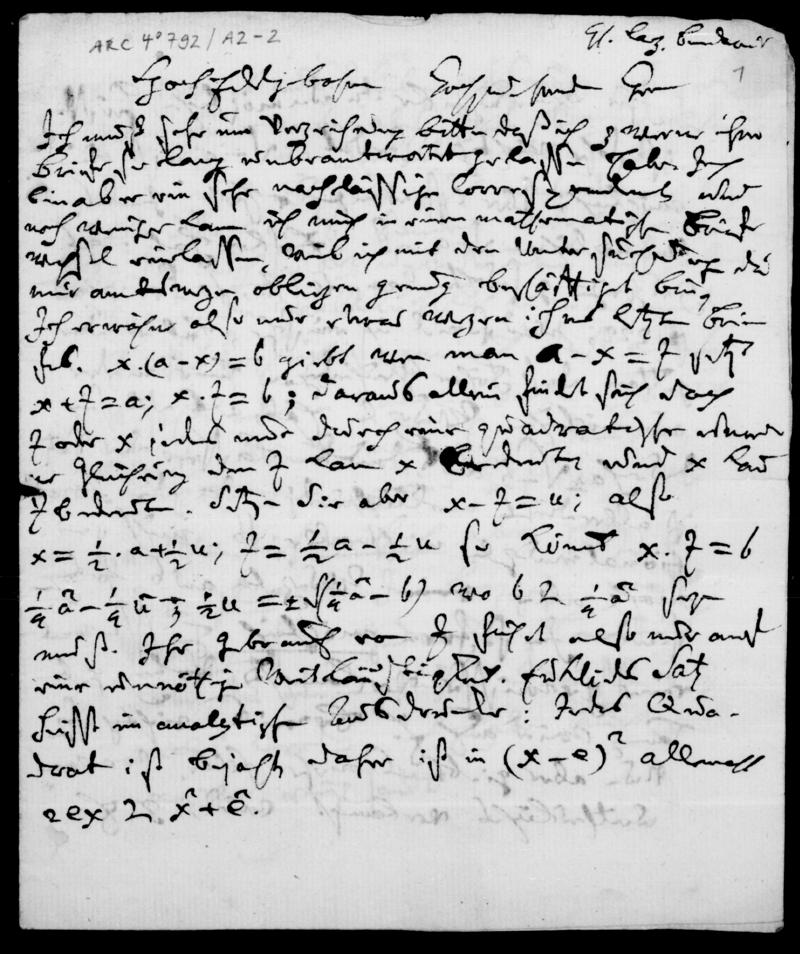 ARC 4° 792 / A2-2
Laz. Bendavid
1
Hochedelgebohrner Hochzuehrender Herr
Ich muß sehr um Verzeihung bitten daß ich zwene ihrer
Briefe so lang unbeantwortet gelassen habe. Ich
bin aber ein sehr nachlässiger Correspondent und
noch weniger kann ich mich in einen mathematischen Brief-
wechsel einlassen, weil ich mit den Untersuchungen die
mir amtswegen obliegen genug beschäfftiget bin,
Ich erwähne also nur etwas wegen ihres letzten Brie-
fes. x.(a-x)=b giebt wen man a-x=z setzt
x+z=a; x.z=b; daraus allein findet sich doch
z oder x jedes nur durch eine quadratische
Gleichung den z kann x bedeuten und x kan
z bedeuten. Setzen Sie aber x-z=u; also
x=½.a+½u; z=½a-½u so kömmt x.z=b
¼a²-¼u²; ½u=±√(¼a²-b) wo b < ¼a² seyn
muß. Ihr Gebrauch von z führt also nur auf
eine unnöthige Weitläuftigkeit. Euklides Satz
heisst im analytischen Ausdrucke: Jedes Qua-
drat ist bejaht daher ist in (x-e)² allemahl
2ex < x²+e².